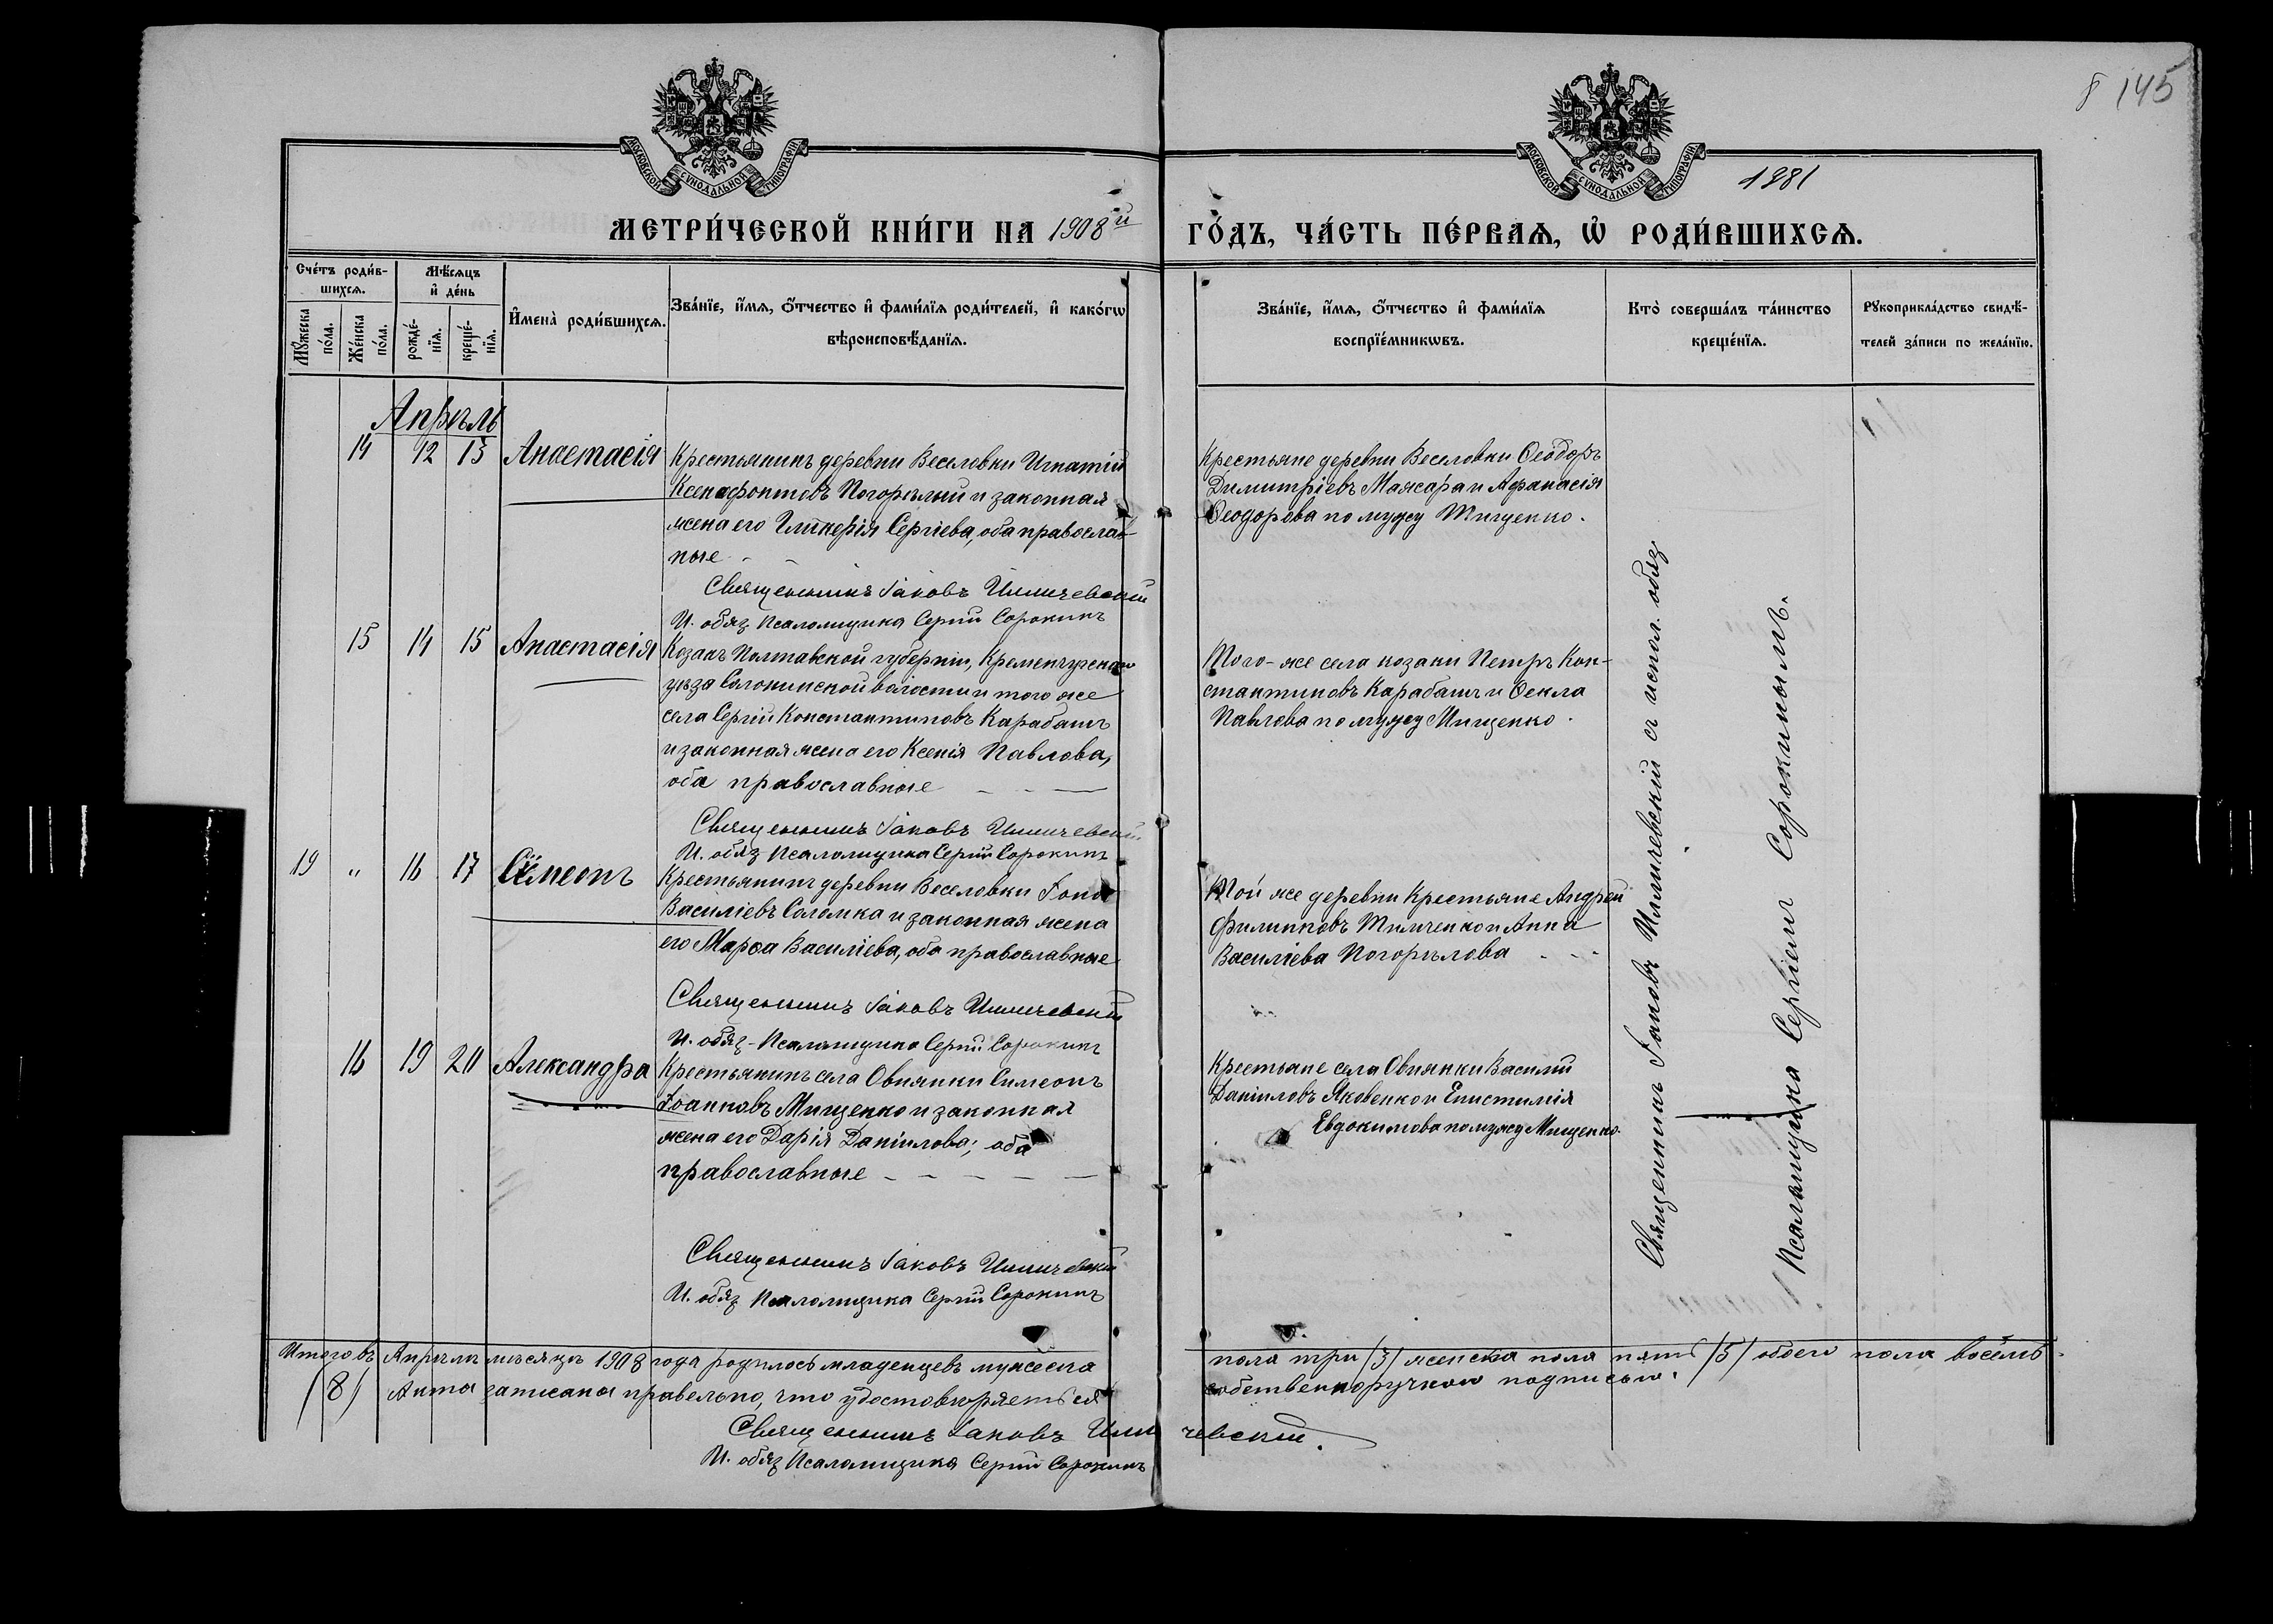 8 145
МОСКОВСКОЙ СѴНОДАЛЬНОЙ ТИПОГРАФІИ
МОСКОВСКОЙ СѴНОДАЛЬНОЙ ТИПОГРАФІИ
1281
МЕТРИ́ЧЕСКОЙ КНИ́ГИ НА 1908й
ГО́ДЪ, ЧА́СТЬ ПЕ́РВАѦ, Ѡ҆ РОДИ́ВШИХСѦ.
Сче́тъ роди́в-
шихсѧ.
Мꙋ́жеска
по́ла.
Же́нска
по́ла.
Мѣ́сѧцъ
и҆ де́нь
рожде́-
нїѧ.
креще́-
нїѧ.
И҆мена̀ роди́вшихсѧ.
Зва́нїе, и҆́мѧ, ѻ҆́тчество и҆ фами́лїѧ роди́телей, и҆ како́гѡ
вѣроисповѣ́данїѧ.
Зва́нїе, и҆́мѧ, ѻ҆́тчество и҆ фами́лїѧ
воспрїе́мникѡвъ.
Кто̀ соверша́лъ та́инство
креще́нїѧ.
Рꙋкоприкла́дство свидѣ́-
телей за́писи по жела́нїю.
Апрѣль
14 12 13 Анастасія
Крестьянинъ деревни Веселовки Игнатій
Ксенофонтовъ Погорѣлый и законная
жена его Гликерія Сергіева, оба православ-
ные
Священникъ Іаковъ Илличевскій
И. обяз. Псаломщика Сергій Сорокинъ
Крестьяне деревни Веселовки Ѳеодоръ
Димитріевъ Маясара и Афанасія
Ѳеодорова по мужу Тищенко.
15 14 15 Анастасія
Козакъ Полтавской губерніи, Кременчугскаго
уѣзда Солокинской волости и того же
села Сергій Константиновъ Карабашъ
и законная жена его Ксенія Павлова,
оба православные
Священникъ Іаковъ Илличевскій
И. обяз Псаломщика Сергій Сорокинъ
Того-же села козаки Петръ Кон-
стантиновъ Карабашъ и Ѳекла
Павлова по мужу Мищенко.
19 " 16 17 Сѵмеонъ
Крестьянинъ деревни Веселовки Іона
Василіевъ Соломка и законная жена
его Марѳа Василіева, оба православные
Священникъ Іаковъ Илличевскій
И. обяз-Псаломщика Сергій Сорокинъ
Той же деревни Крестьяне Андрей
Филипповъ Тимченко и Анна
Василіева Погорѣлова
16 19 20 Александра
Крестьянинъ села Овнянки Симеонъ
Іоанновъ Мищенко и законная
жена его Дарія Даніилова; оба
православные
Священникъ Іаковъ Илличевскій
И. обяз Псаломщика Сергій Сорокинъ
Крестьяне села Овнянки Василій
Даніиловъ Яковенко и Епистимія
Евдокимова по мужу Мищенко.
Священникъ Іаковъ Илличевскій съ испол. обяз.
Псаломщика Сергіемъ Сорокинымъ.
Итого въ Апрѣлѣ мѣсяцѣ 1908 года родилось младенцевъ мужеска пола три /3/ женска пола пять /5/ обоего пола восемь
/8/ Акта записаны правельно, что удостовѣряется собственноручною подписью.
Священникъ Іаковъ Илличевскій.
И. обяз Псаломщика Сергій Сорокинъ